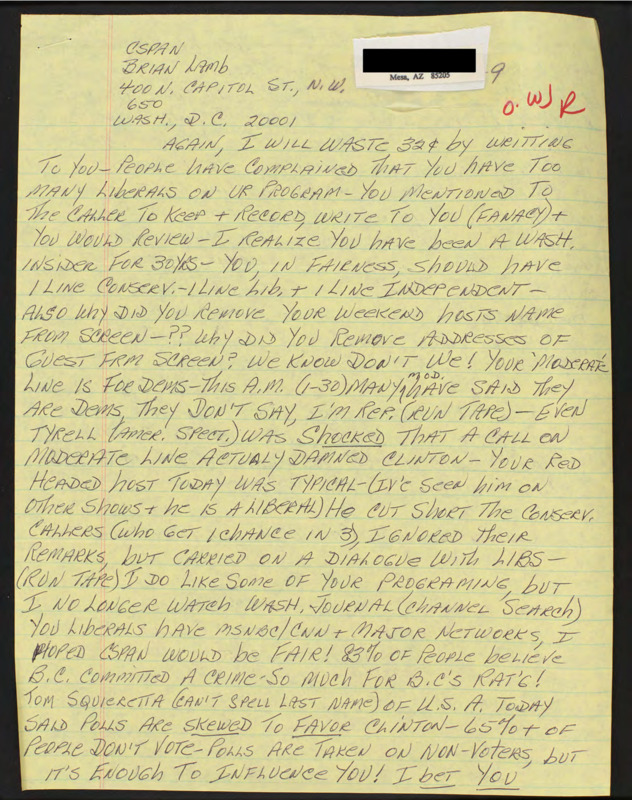 CSPAN
BRIAN LAMB
400 N. CAPITOL ST., N.W.
650
WASH., D.C. 20001
Mesa, AZ 85205
9
O. WJ R
AGAIN, I WILL WASTE 32¢ BY WRITTING
TO YOU - PEOPLE HAVE COMPLAINED THAT YOU HAVE TOO
MANY LIBERALS ON UR PROGRAM - YOU MENTIONED TO
THE CALLER TO KEEP + RECORD, WRITE TO YOU (FANACY) +
YOU WOULD REVIEW - I REALIZE YOU HAVE BEEN A WASH.
INSIDER FOR 30 YRS - YOU, IN FAIRNESS, SHOULD HAVE
1 LINE CONSERV. - 1 LINE LIB. + 1 LINE INDEPENDENT -
ALSO WHY DID YOU REMOVE YOUR WEEKEND HOSTS NAME
FROM SCREEN - ?? WHY DID YOU REMOVE ADDRESSES OF
GUEST FRM SCREEN? WE KNOW DON'T WE! YOUR "MODERATE
LINE IS FOR DEMS - THIS A.M. (1-30) MANY MOD. HAVE SAID THEY
ARE DEMS, THEY DON'T SAY, I'M REP. (RUN TAPE) - EVEN
TYRELL (AMER. SPECT.) WAS SHOCKED THAT A CALL ON
MODERATE LINE ACTUALY DAMNED CLINTON - YOUR RED
HEADED HOST TODAY WAS TYPICAL - (IV'E SEEN HIM ON
OTHER SHOWS + HE IS A LIBERAL) HE CUT SHORT THE CONSERV.
CALLERS (WHO GET 1 CHANCE IN 3), IGNORED THEIR
REMARKS, BUT CARRIED ON A DIALOGUE WITH LIBS -
(RUN TAPE) I DO LIKE SOME OF YOUR PROGRAMING, BUT
I, NO LONGER WATCH WASH. JOURNAL (CHANNEL SEARCH)
YOU LIBERALS HAVE MSNBC/CNN + MAJOR NETWORKS, I
HOPED CSPAN WOULD BE FAIR! 83% OF PEOPLE BELIEVE
B.C. COMMITTED A CRIME - SO MUCH FOR B.C'S RAT'G!
TOM SQUIERETTA (CAN'T SPELL LAST NAME) OF U.S.A. TODAY
SAID POLLS ARE SKEWED TO FAVOR CLINTON - 65% + OF
PEOPLE DON'T VOTE - POLLS ARE TAKEN ON NON-VOTERS, BUT
IT'S ENOUGH TO INFLUENCE YOU! I BET YOU